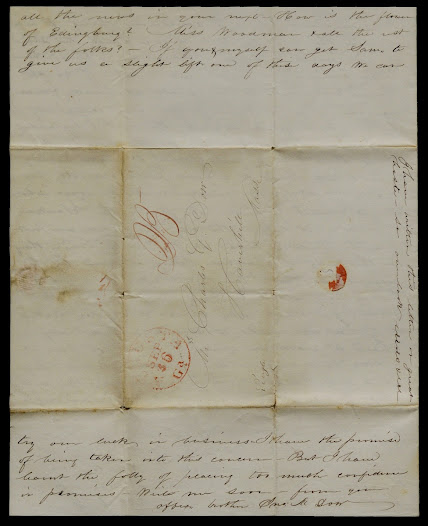 all the news in your next - How is the flower
of Edingburg? Miss Woodman & all the rest
of the folks? - If you & myself can get Sam to
give us a slight lift one of this days we can
Mr Charles G Dow
Haverhill
Mass
SEP
GA
I have written this letter in great
haste so
try our luck in business. I have the promise
of being taken into this concern But I have
learnt the folly of placing too much confidence
in promises Write me soon from your
affec brother Dow